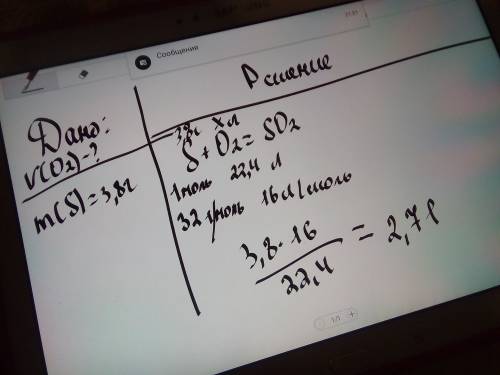 21:21
Сообщения
Решение
Дано:
V(O2)-?
m(S)=3,8г
3,8г xл
S+O2=SO2
1моль 22,4 л
32г/моль 16г/моль
3,8·16
22,4
= 2,7l
1/1 +